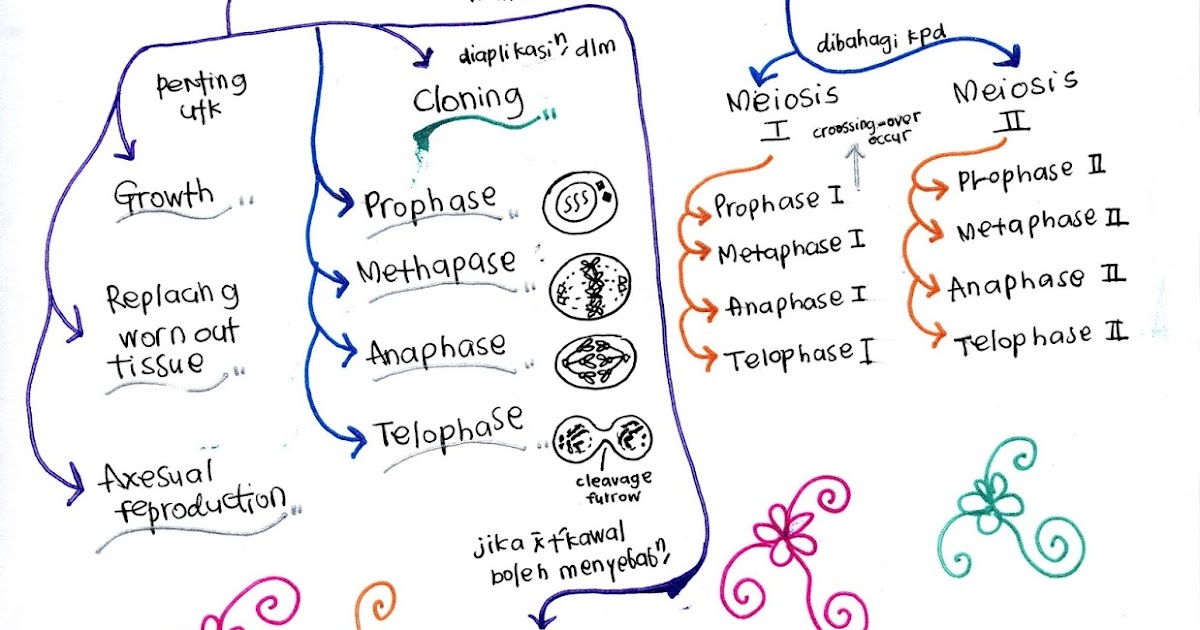 penting
utk
Growth
Replacing
worn out
tissue
Axesual
reproduction
diaplikasiⁿ, dlm
Cloning
Prophase
Methapase
Anaphase
Telophase
cleavage
furrow
jika x̄ t'kawal
boleh menyebabⁿ,
dibahagi kpd
Meiosis
I
croossing-over
occur
Prophase I
Metaphase I
Anaphase I
Telophase I
Meiosis
II
Prophase II
Metaphase II
Anaphase II
Telophase II